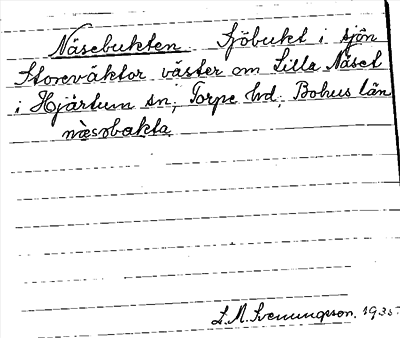 Näsebukten. Sjöbukt i sjön
Storeväktor väster om Lilla Näset
i Hjärtum sn; Torpe hd; Bohus län
næsəbakta
L. M. Svenungsson. 1935.